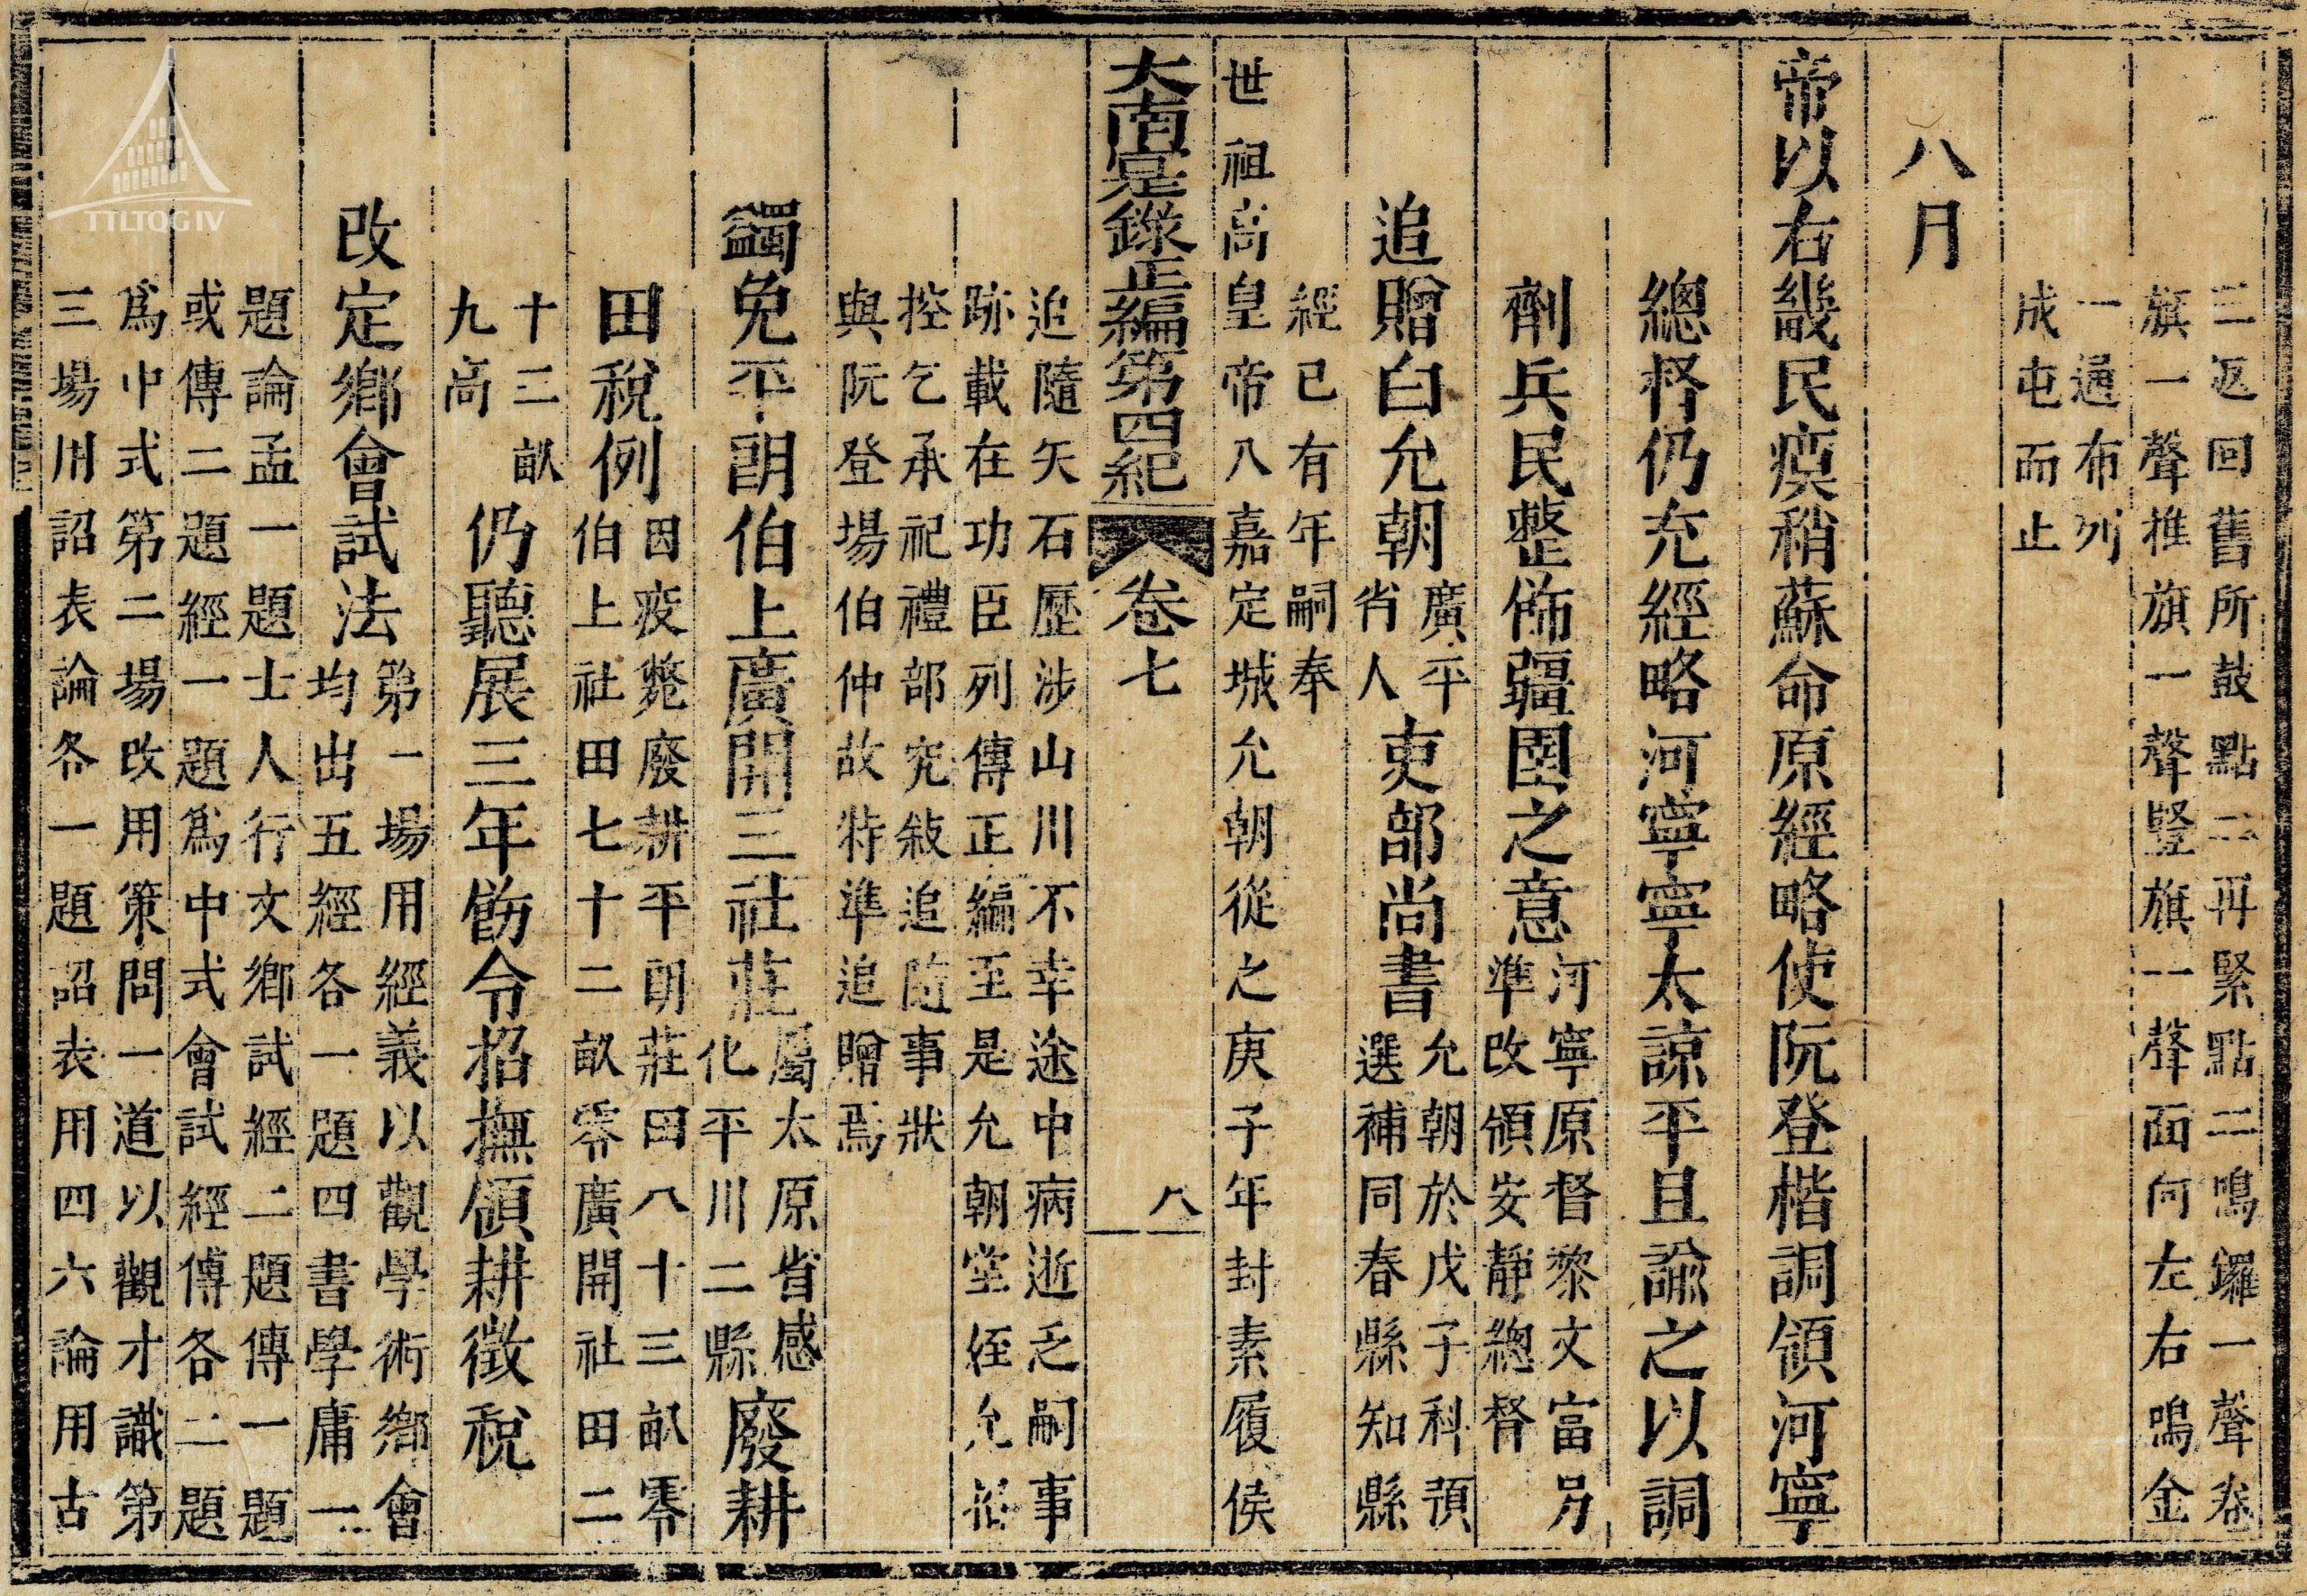 三返回舊所鼓點二再緊點二鳴鑼一聲卷
旗一聲推旗一聲豎旗一聲面向左右鳴金
一通布列
成屯而止
八月
帝以右畿民瘼稍蘇命原經略使阮登楷調領河寧
總督仍充經略河寧寧太諒平且諭之以調
劑兵民整飭疆圉之意
河寧原督黎文富另
準改領安靜總督
追贈白允朝
廣平
省人
吏部尚書
允朝於戊子科預
選補同春縣知縣
經已有年嗣奉
世祖高皇帝八嘉定城允朝從之庚子年封素履侯
大南寔錄正編第四紀 卷七 八
追隨矢石歷涉山川不幸途中病逝乏嗣事
跡載在功臣列傳正編至是允朝堂姪允在
控乞承祀禮部究敍追隨事狀
與阮登場伯仲故特準追贈焉
蠲免平朗伯上廣開三社莊
屬太原省感
化平川二縣
廢耕
田稅例
因疫斃廢耕平朗莊田八十三畝零
伯上社田七十二畝零廣開社田二
十二畝
九高
仍聽展三年飭令招撫領耕徵稅
改定鄉會試法
第一場用經義以觀學術鄉會
均出五經各一題四書學庸一
題論孟一題士人行文鄉試經二題傳一題
或傳二題經一題爲中式會試經傳各二題
爲中式第二場改用策問一道以觀才識第
三場用詔表論各一題詔表用四六論用古
TTLTQG IV